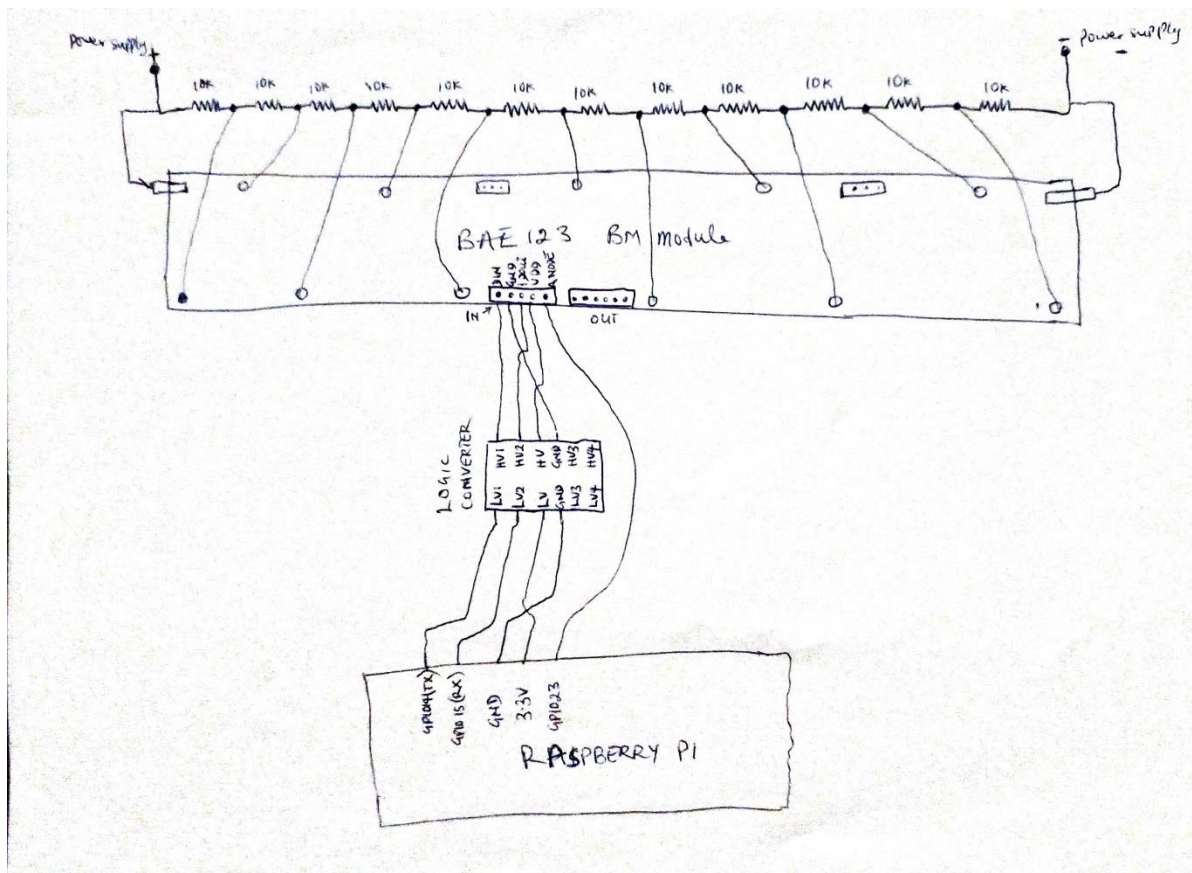 Power supply +
- power supply
-
10K
10K
10K
10K
10K
10K
10K
10K
10K
10K
10K
10K
BAE 123 BM Module
GND
VDD
IN
OUT
LOGIC
CONVERTER
HV1
HV2
HV
GND
HV3
HV4
LV1
LV2
LV
GND
LV3
LV4
GPIO15(RX)
GND
3.3V
GPIO23
RASPBERRY PI